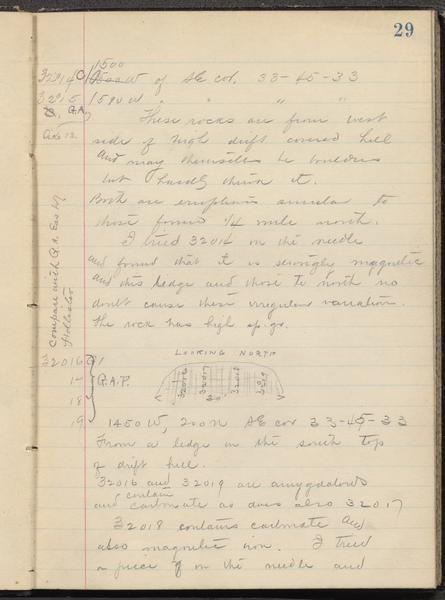 29
1500
32014 0/ 1500 W of SE cor. 33-45-33
32015 1590 W " " " "
G.A.
These rocks are from west
side of high drift covered hill
and may themselves be boulders
but I hardly think it.
Both are eruptives similar to
those found 1/4 mile north.
I tried 32014 on the needle
and found that it is strongly magnetic
and this ledge and those to north no
doubt cause these irregular variation.
The rock has high sp. gr.
Compare with
LOOKING NORTH
32016
17 G.A.P.
18
19
32016 32017 32018 32019
1450 W, 200 N SE cor 33-45-33
From a ledge on the south top
of drift hill.
32016 and 32019 are amygdaloids
and contain carbonate as does also 32017
32018 contains carbonate and
also magnetic iron. I tried
a piece of on the needle and